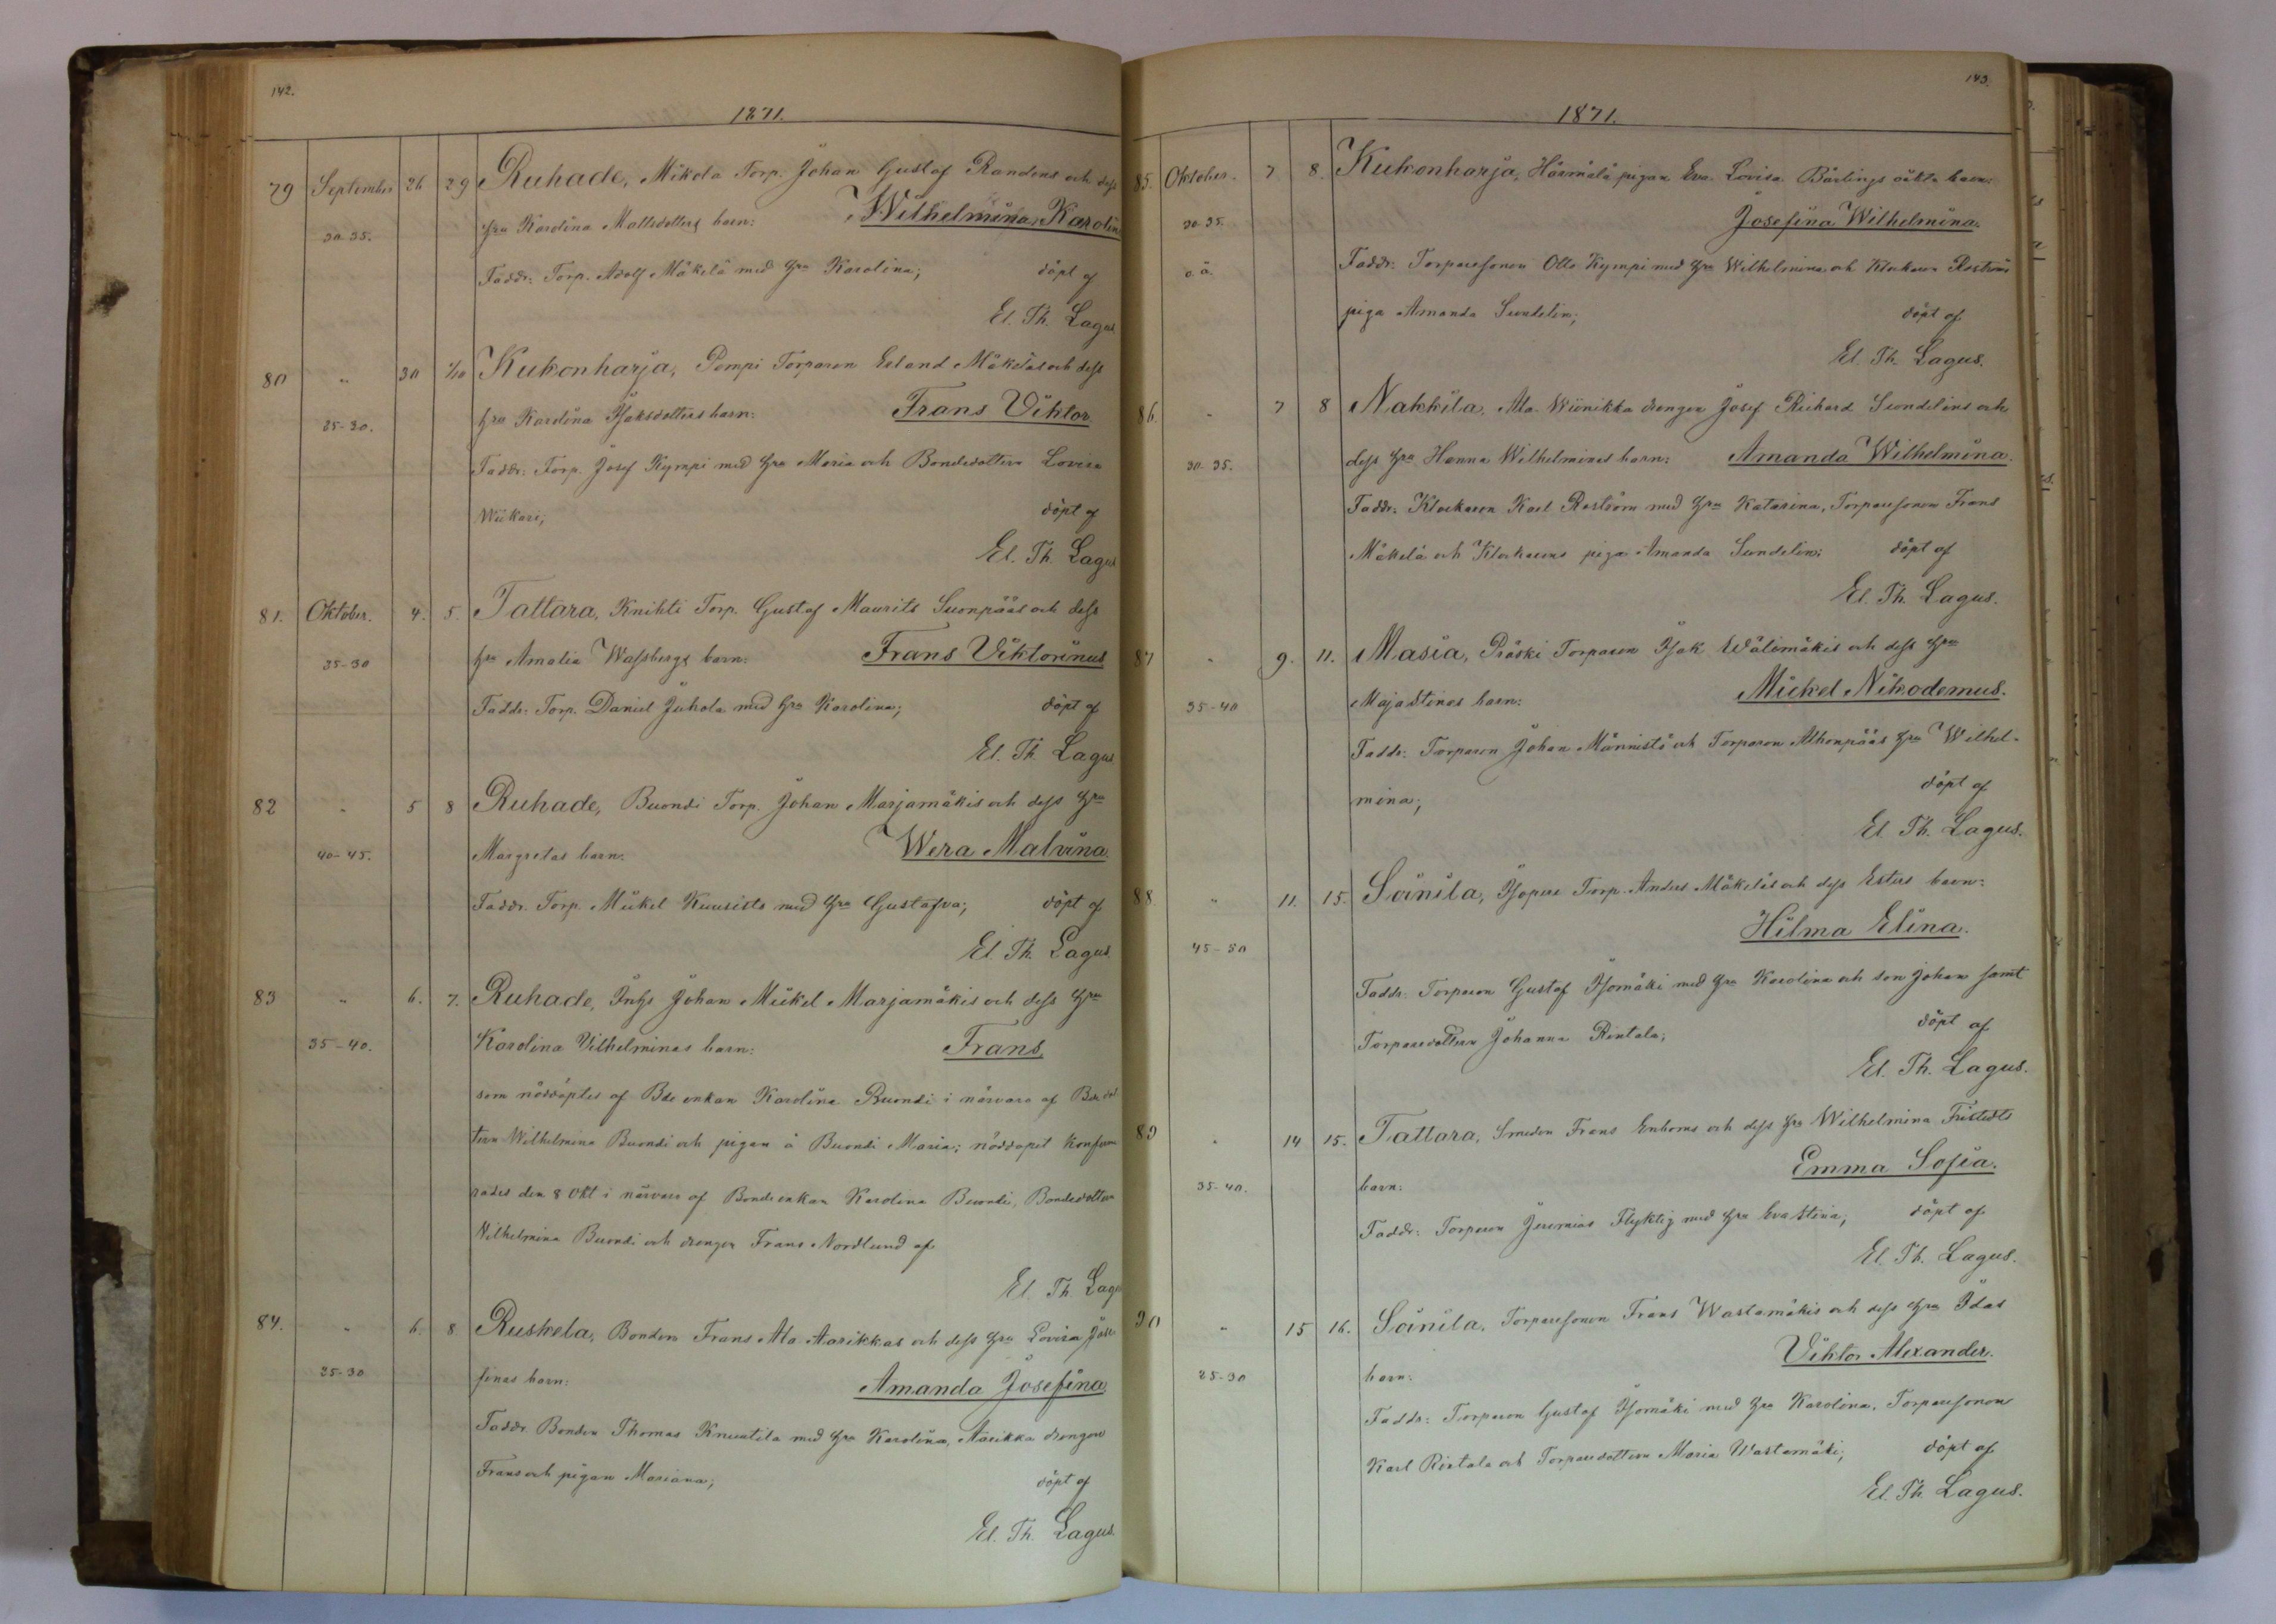 142.
1871.
79 September 26 29 Ruhade, Mikola Torp. Johan Gustaf Randens och dess
30-35. hru Karolina Mattsdotters barn: Wilhelmina Karolina
Faddr: Torp. Adolf Mäkelä med hru Karolina; döpt af
El. Th. Lagus
80 " 30 1/10 Kukonharja, Pompi Torparen Erland Mäkeläs och dess
25-30. hru Karolina Isaksdotters barn: Frans Viktor
Faddr: Torp. Josef Kympi med hru Maria och Bondedottern Lovisa
Wiikari; döpt af
El. Th. Lagus
81. Oktober. 4. 5. Tattara, Knihti Torp. Gustaf Maurits Suonpääs och dess
25-30 hru Amalia Wassbergs barn: Frans Viktorinus
Faddr: Torp. Daniel Juhola med hru Karolina; döpt af
El. Th. Lagus
82 " 5 8 Ruhade, Buondi Torp. Johan Marjamäkis och dess hru
40-45. Margretas barn: Wera Malvina.
Faddr. Torp. Mickel Kuusisto med hru Gustafva; döpt af
El. Th. Lagus.
83 " 6. 7. Ruhade, Inhs Johan Mickel Marjamäkis och dess hru
35-40. Karolina Vilhelminas barn: Frans
som nöddöptes af Bde enkan Karolina Buondi i närvaro af Bde dot
tern Wilhelmina Buondi och pigan å Buondi Maria; nöddopet konfirme
rades den 8 Okt i närvaro af Bondeenkan Karolina Buondi, Bondedottern
Vilhelmina Buondi och drengen Frans Nordlund af
El. Th. Lagus
84. " 6. 8 Ruskela, Bonden Frans Ala Aarikkas och dess hru Lovisa Jose
25-30 finas barn: Amanda Josefina.
Faddr. Bonden Thomas Knuutila med hru Karolina, Aarikka drengen
Frans och pigan Mariana; döpt af
El. Th. Lagus.
143.
1871.
85. Oktober. 7 8. Kukonharja, Härmälä pigan Eva Lovisa Bärlings oäkta barn:
30-35. Josefina Wilhelmina.
o.ä. Faddr: Torparesonen Otto Kympi med hru Wilhelmina och Klockaren Roströms
piga Amanda Sundelin; döpt af
El. Th. Lagus.
86. " 7 8 Nakkila, Ala-Wiinikka drengen Josef Richard Sundelins och
30-35. dess hru Hanna Wilhelminas barn: Amanda Wilhelmina.
Faddr: Klockaren Karl Roström med hru Katarina, Torparesonen Frans
Mäkelä och Klockarens piga Amanda Sundelin; döpt af
El. Th. Lagus.
87 " 9. 11. Masia, Präski Torparen Isak Wälimäkis och dess hru
35-40 Maja Stinas barn: Mickel Nikodemus.
Faddr: Torparen Johan Männistö och Torparen Alhonpääs hru Wilhel-
mina; döpt af
El. Th. Lagus.
88 " 11. 15. Soinila, Isopere Torp. Anders Mäkeläs och dess Esters barn:
45-50 Hilma Elina.
Faddr: Torparen Gustaf Isomäki med hru Karolina och son Johan samt
Torparedottern Johanna Rintala; döpt af
El. Th. Lagus.
89 " 14 15. Tattara, Smeden Frans Enboms och dess hru Wilhelmina Fristedts
35-40. barn: Emma Sofia.
Faddr: Torparen Jeremias Flyktig med hru Eva Stina; döpt af
El. Th. Lagus.
90 " 15 16. Soinila, Torparesonen Frans Wastamäkis och dess hru Idas
25-30 barn: Viktor Alexander.
Faddr: Torparen Gustaf Isomäki med hru Karolina, Torparesonen
Karl Rintala och Torparedottern Maria Wastamäki; döpt af
El. Th. Lagus.